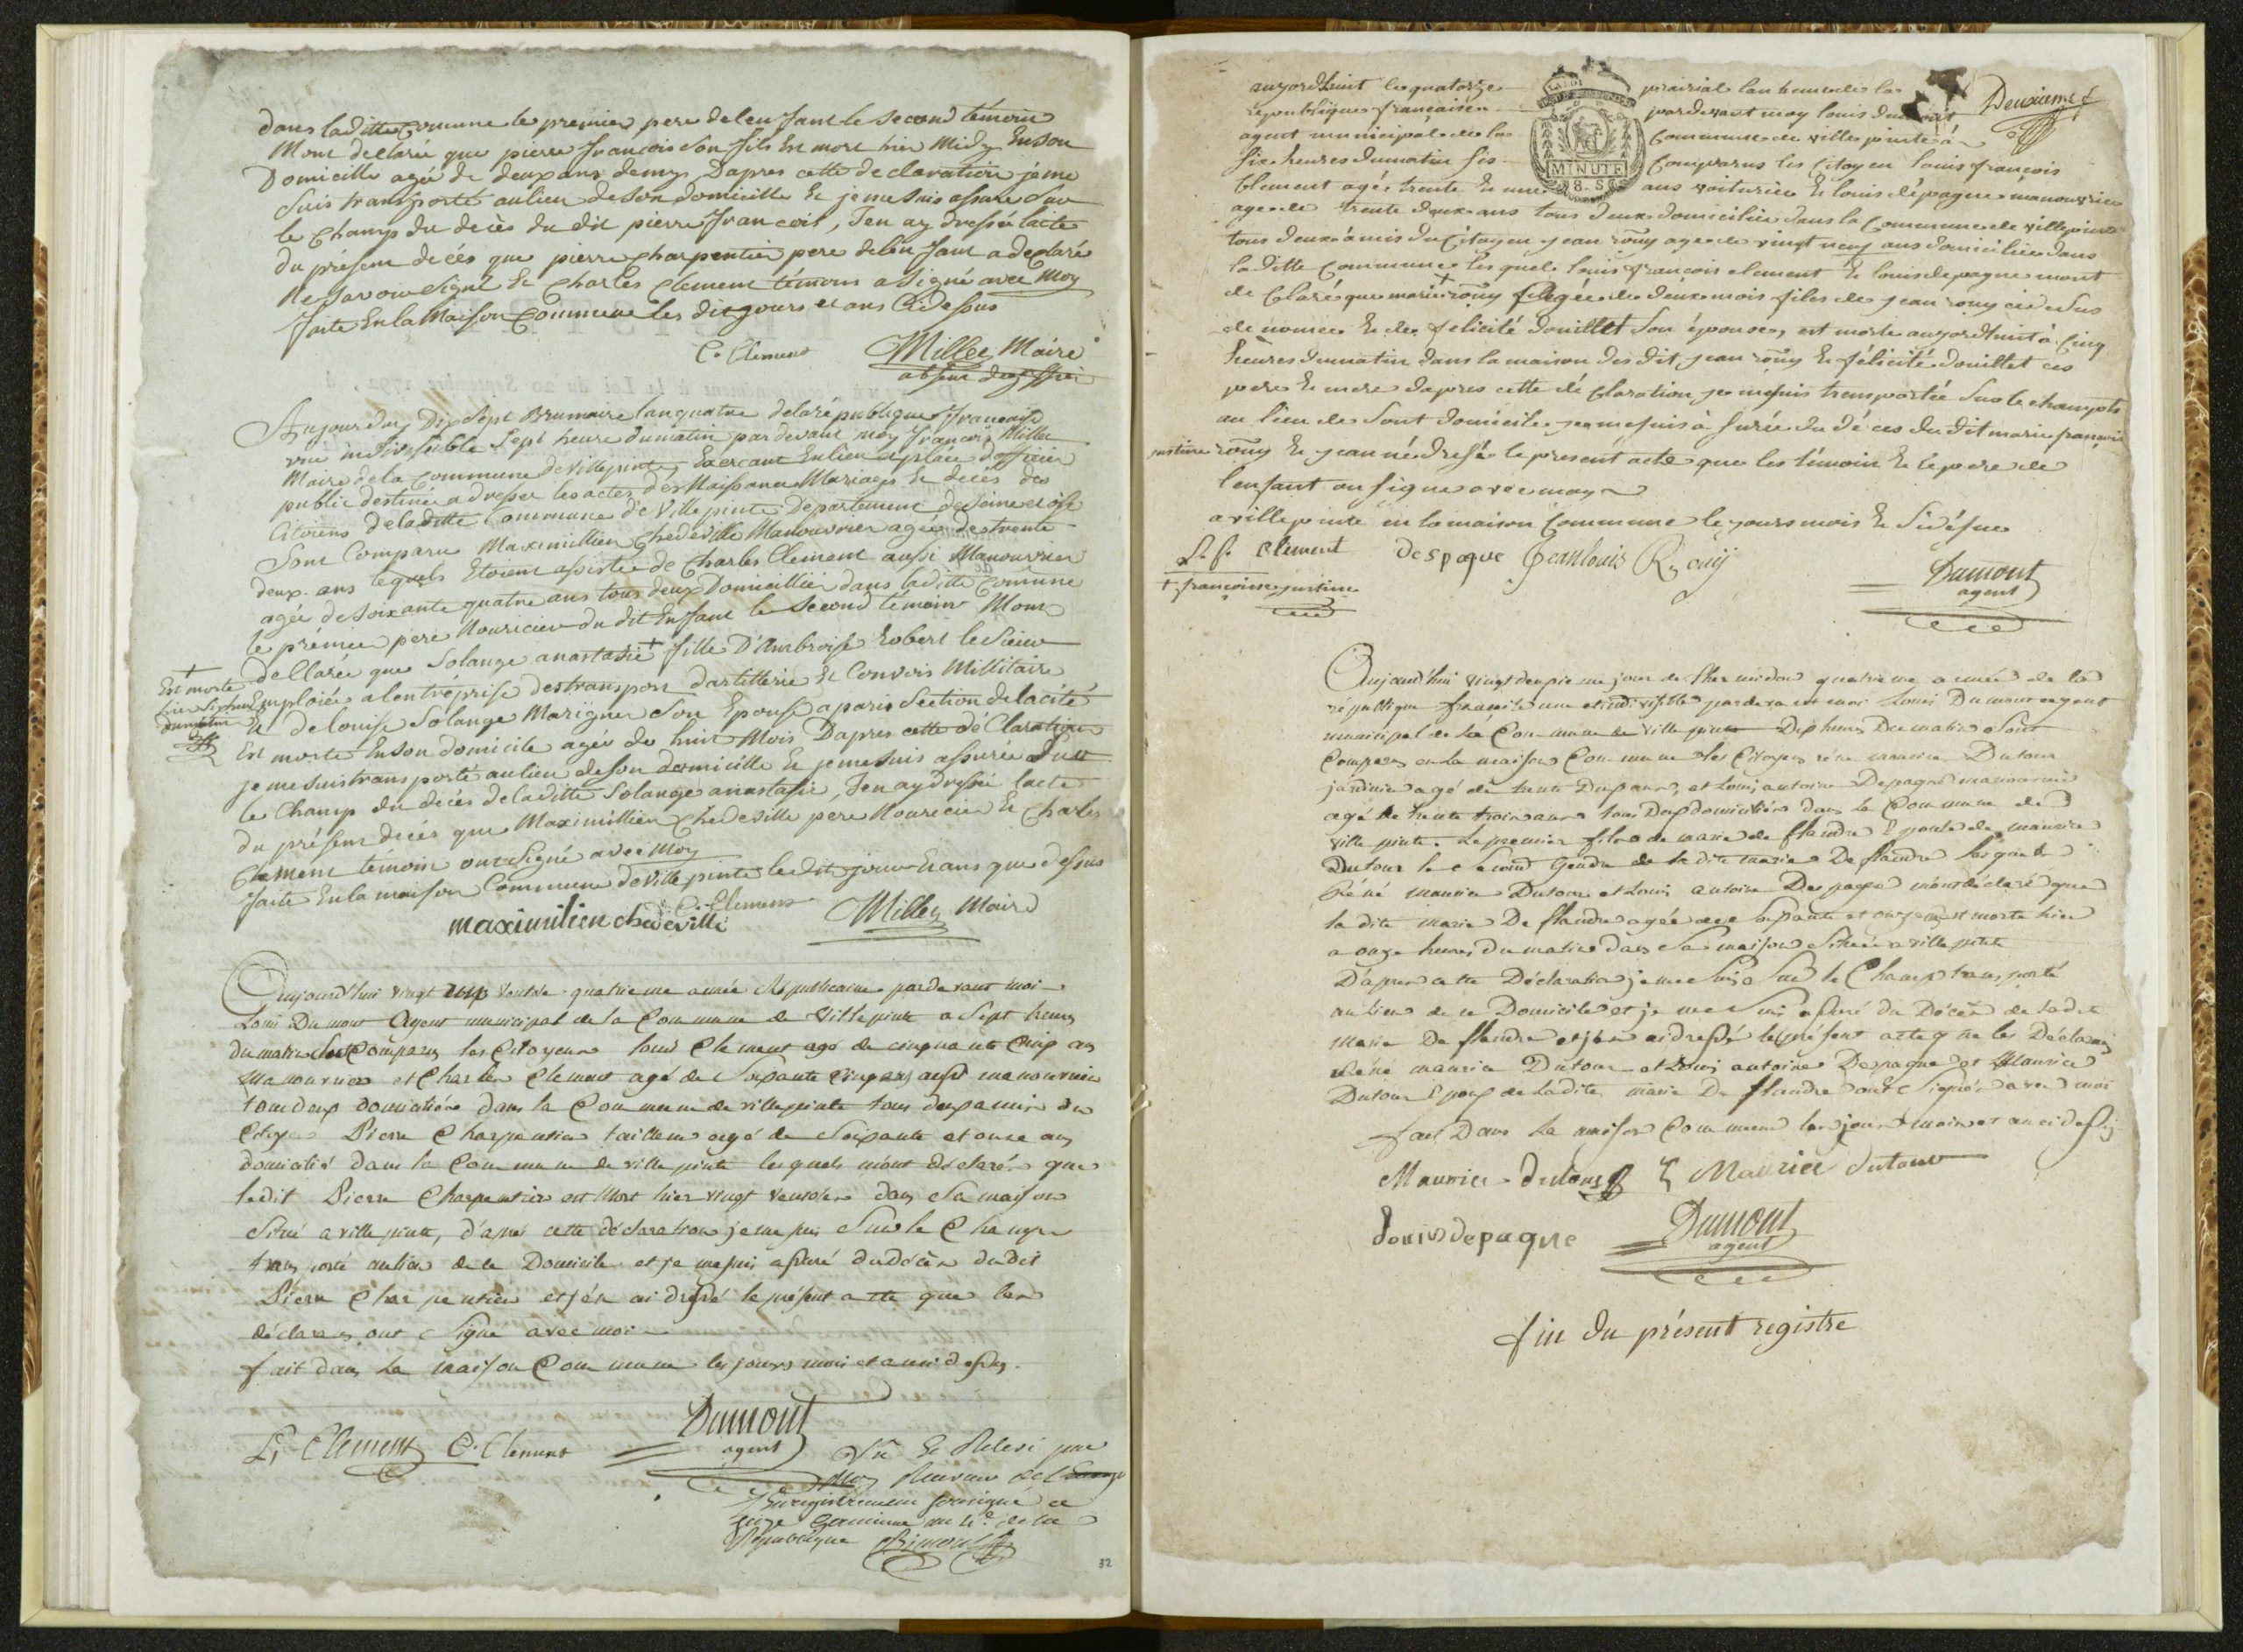 dans laditte Comune le premier pere de len fant le second témoin
Mont declarée que pierre francois Son fils Est mort hier Midy En Son
Domicille agée de deux ans demy Dapres cette declaration je me
Suis transporté aulieu deson domicille Et je me suis assure Sur
le Champ du decès du dit pierre francois, Jen ay dressée lacte
du présent decés que pierre charpentier pere delen fant a declaré
ne Savoir Signé Et Charles Clement témoins a Signé avec Moy
faite En la Maison Commune les dit jours et ans Ci dessus
C. Clement Millee Maire
Aujourduy Dix Sept Brumaire lan quatre delarépublique francaise
une indivissible Sept heure dumatin par devant moy francois Millee
Maire dela Commune de Villepinte, Exercant En lieu et place d'officier
public destinée a dresser les actes des Naissance Mariages Et decés des
Citoiens deladitte Commune de Villepinte Departement de Seine et oise
Sont Comparu Maximillien Chedeville Manouvrier agée de trente
deux ans lequels Etoient assistée de Charles Clement aussi Manouvrier
agée de Soixante quatre ans tous deux Domicilliée dans laditte Comune
le prémier pere Nouricier du dit Enfant le Second témoin Mont
dellarée que Solange anastasie + fille D'Ambroise Robert le Sieur
+
Est morte
hier Six heure
dumatin
Emploiée alentréprise destransport dartillerie Et Convois Millitaire
Et de louise Solange Marigner Son Epouse a paris Section de la cité
Est morte En son domicile agée de huit Mois Dapres cette déClaration
je me suis trans porté au lieu de son domicille Et je me suis assurée Sur
le Champ du decés deladitte Solange anastasie, Jen ay Dressée lacte
du présent decés que Maximillien Chedeville pere Nouricier Et Charles
Clement témoin ont Signé avec Moy
faite En la maison Commune de Villepinte ledit jour Et ans que dessus
C. Clement
maximilien chedeville Millee Maire
Aujourd'hui vingt Ventose quatrieme année Républicaine pardevant moi
Louis Dumont Agent municipal de la Commune de Villepinte a Sept heures
du matin Sont Comparus les Citoyens louis Clement agé de cinquante Cinq ans
Manouvrier et Charles Clement agé de Soixante Cinq ans aussi manouvrier
tous deux domiciliés dans la Commune de villepinte tous deux amis du
Citoyen Pierre Charpentier tailleur agé de Soixante et onze ans
domicilié dans la Commune de ville pinte lesquels m'ont déclarés que
ledit Pierre Charpentier est Mort hier vingt ventose dans Sa maison
Situé a ville pinte, d'après cette déclaration je me suis Sur le Champ
transporté au lieu de ce Domicile et je me suis assuré du décès dudit
Pierre Charpentier et j'en ai dressé le présent acte que les
déclarans ont Signé avec moi
fait dans la maison Commune les jours mois et an ci dessus.
L. Clement C. Clement Dumont
agent
Vu Et Relevé par
Moy Receveur de l'
Enregistrement soussigné ce
germinal an 4e. de la
République
32
aujordhuit le quatorze prairial lan
republique française pardevant moy louis Dumont
Deuxieme f
agent municipal de la Commune de ville pinte à
Six heures du matin Comparus les Citoyen louis françois
LA LOI
MINUTE
8. S
Clement agée trente Et une ans voiturier Et louis dépagne manouvrier
age de trente deux ans tous deux domiciliée dans la Commune de villepinte
tous deux àmis du Citoyen jean roüy age de vingt neuf ans domiciliée dans
la ditte Commune lesquels louis françois element Et louis depagne mont
de Claré que marie + roüy agée de deux mois files de jean rouy ci desus
de nomée Et de felicité douillet Son épouse, est morte aujordhuit à Cinq
heures dumatin dans la maison des dit jean roüy Et félicité douillet ces
pere Et mere dapres cette dé Claration, je me suis transportée Sur le champts
au lieu de Sont domicile je me suis à surée du dé ces du dit marie françoise
justine roüy Et jean né dresé le present acte que les témoin Et le pere de
lensant on signe avec moy
a villepinte en la maison Commune le jours mois Et
L. f. Clement despague Jean louis Rouÿ
+ françoise justine
Dumont
agent
Aujourd'hui vingt deuxieme jour de thermidor quatrieme année de la
république française une et indivisible pardevant moi Louis Dumont agent
municipal de la Commune de ville pinte Dix heures Du matin Sont
Comparus en la maison Commune les Citoyens réné maurice Dutour
jardinier agé de trente Deux ans, et Louis antoine Depagne manouvrier
agé de trente trois ans tous Deux domiciliés dans la Commune de
ville pinte. Le premier fils de marie de flandre Epouse de maurice
Dutour le Second Gendre de la dite marie De flandre lesquels
Réné maurice Dutour et Louis antoine Despagne m'ont déclaré que
la dite marie De flandre agée de Soixante et onze ans est morte hier
a onze heures Du matin dans Sa maison Située a villepinte
D'apres cette Déclaration je me Suis Sur le Champ transporté
au lieu de ce Domicile et je me Suis assuré du Décès de ladite
Marie De flandre et j'en ai dressé le présent acte que les Déclarans
Réné maurice Dutour et Louis antoine Despagne et Maurice
Dutour Epoux de Ladite marie De flandre ont Signés avec moi
fait Dans la maison Commune les jour mois et an ci dessus
Maurice dutour Maurice dutour
Louis depagne Dumont
agent
fin du présent registre